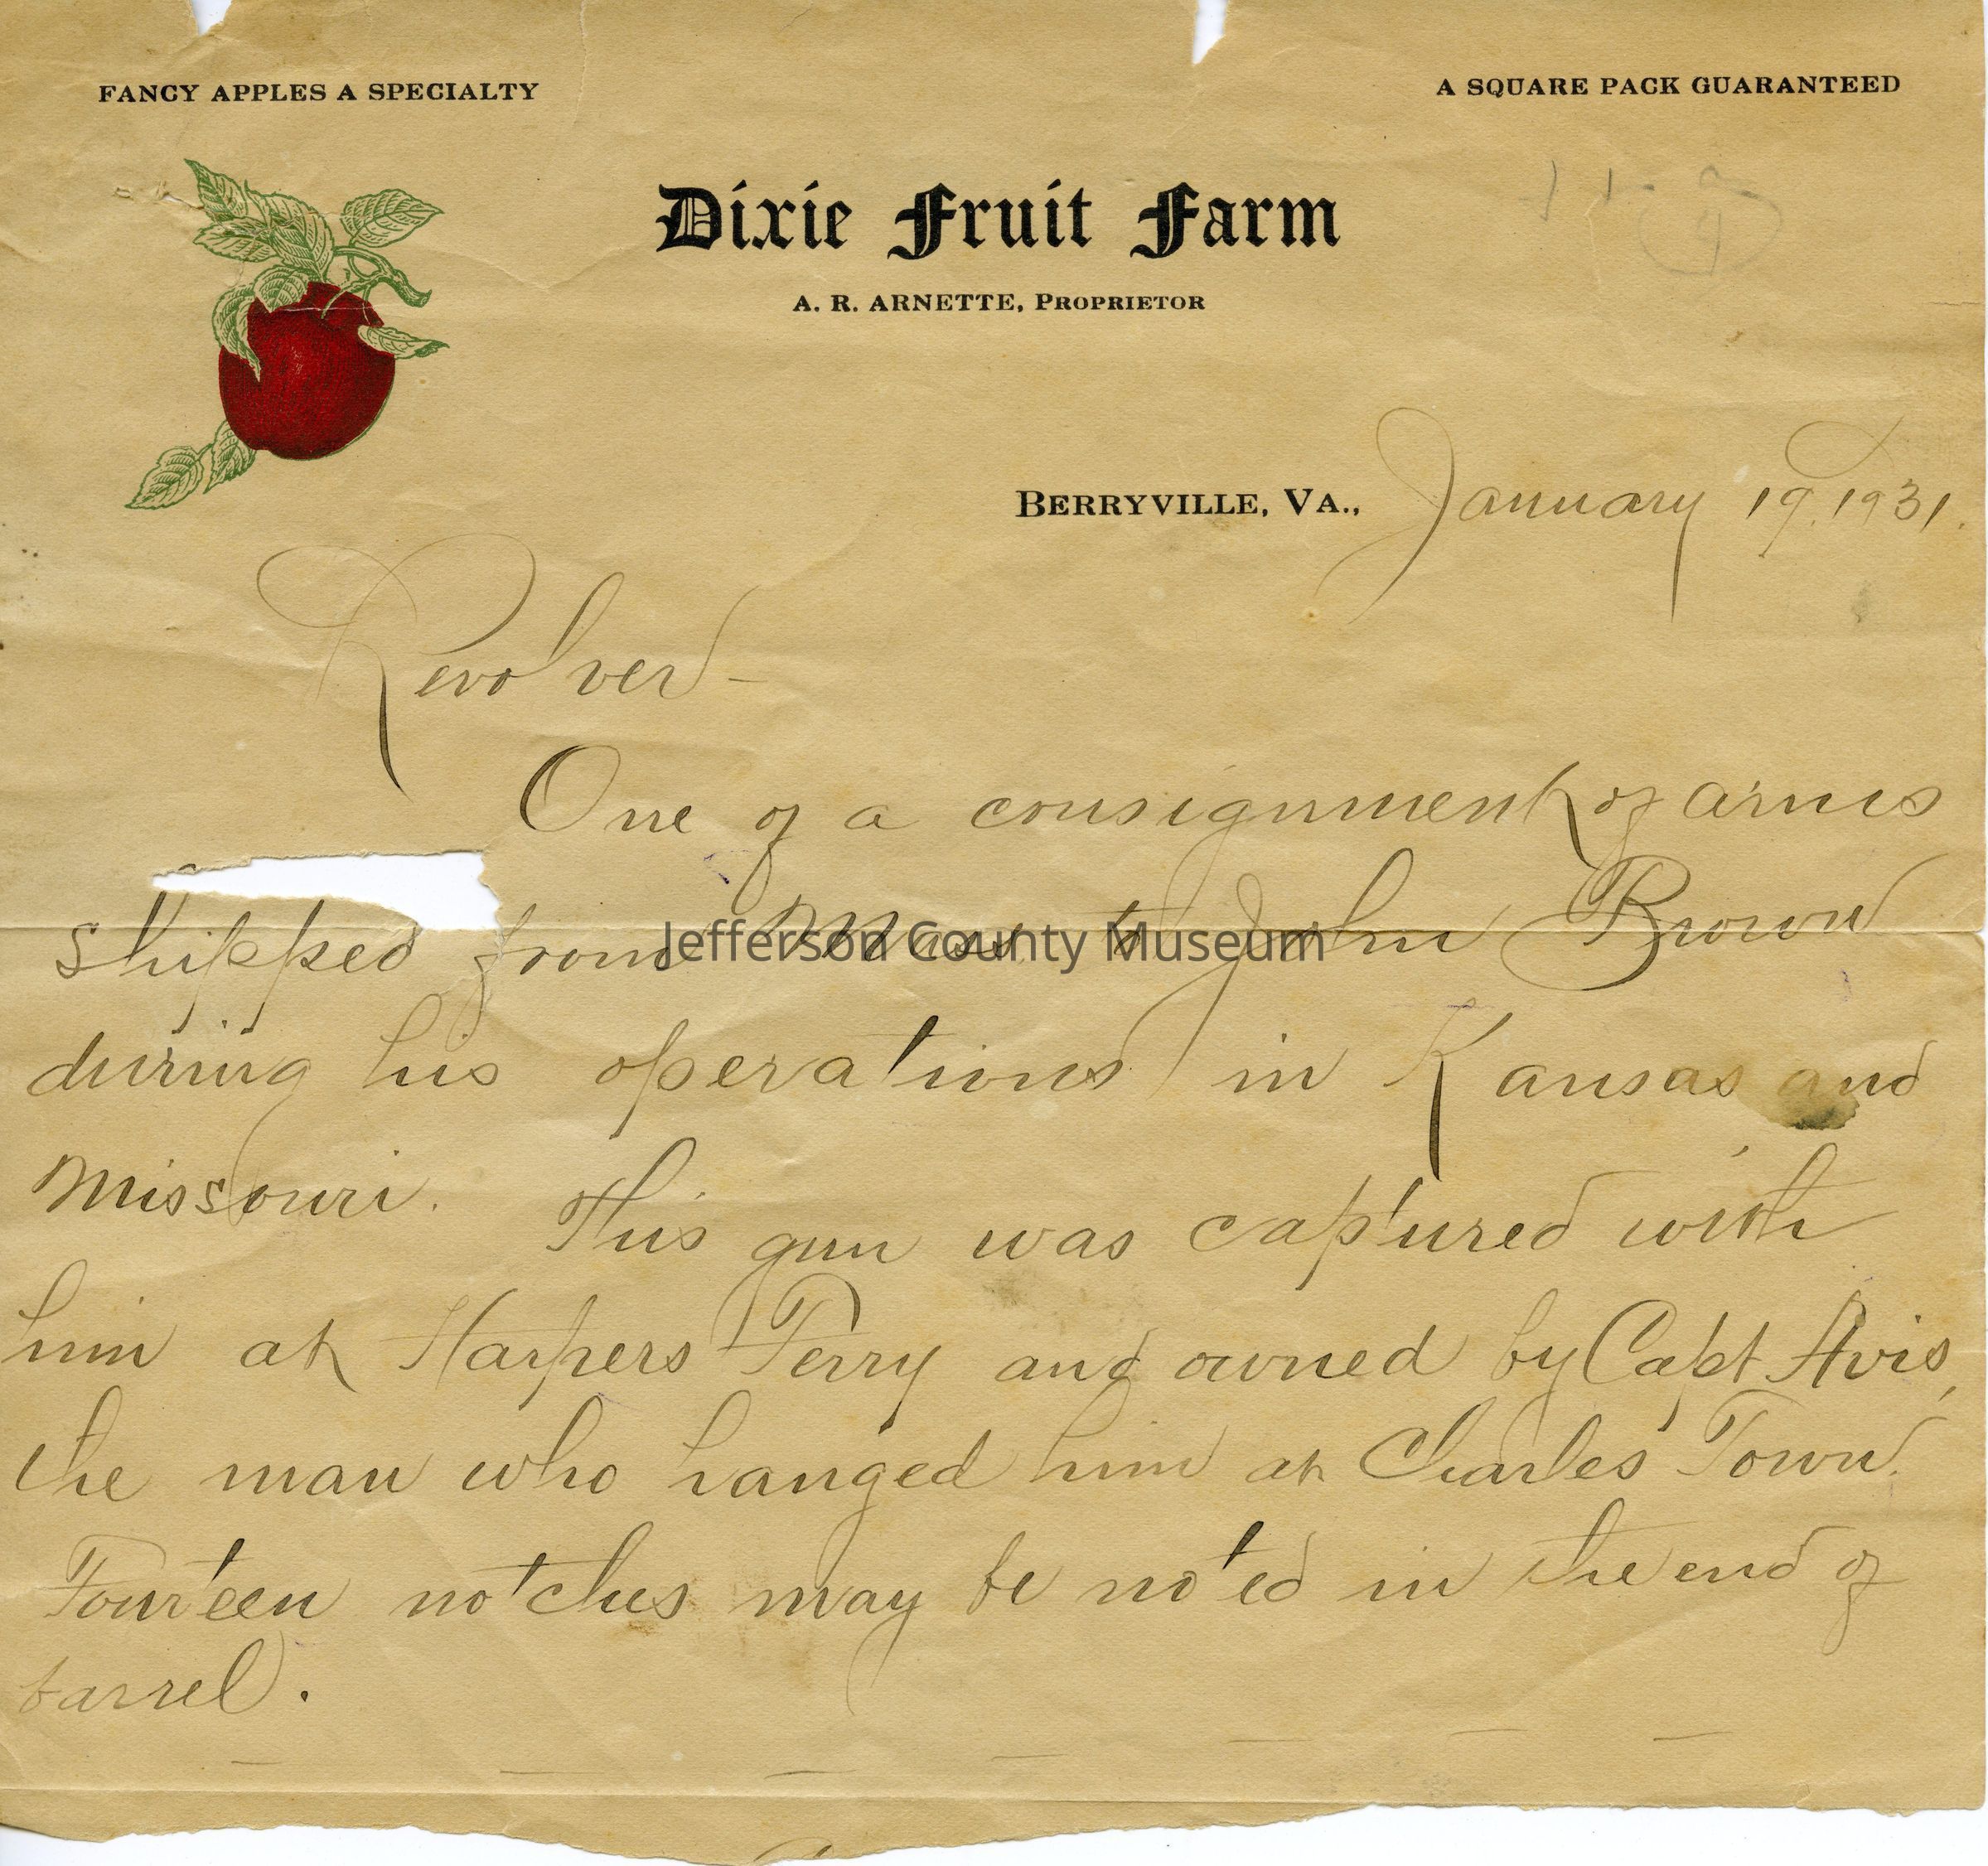 FANCY APPLES A SPECIALTY
A SQUARE PACK GUARANTEED
Dixie Fruit Farm
A. R. ARNETTE, PROPRIETOR
BERRYVILLE, VA., January 19, 1931.
Revolver -
One of a consignment of arms
shipped from Mass. to John Brown
during his operations in Kansas and
Missouri. This gun was captured with
him at Harpers Ferry and owned by Capt Avis,
the man who hanged him at Charles Town.
Fourteen notches may be noted in the end of
barrel.
Jefferson County Museum